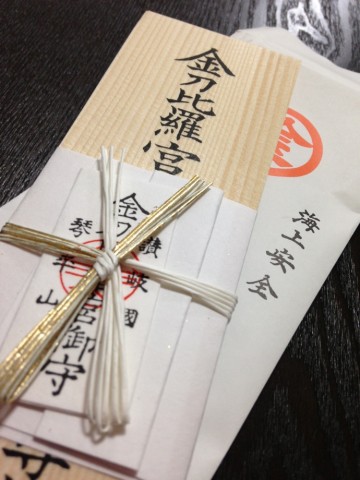 金刀比羅宮
金
海上安全
讃岐國
金刀
宮御守
琴平山
守